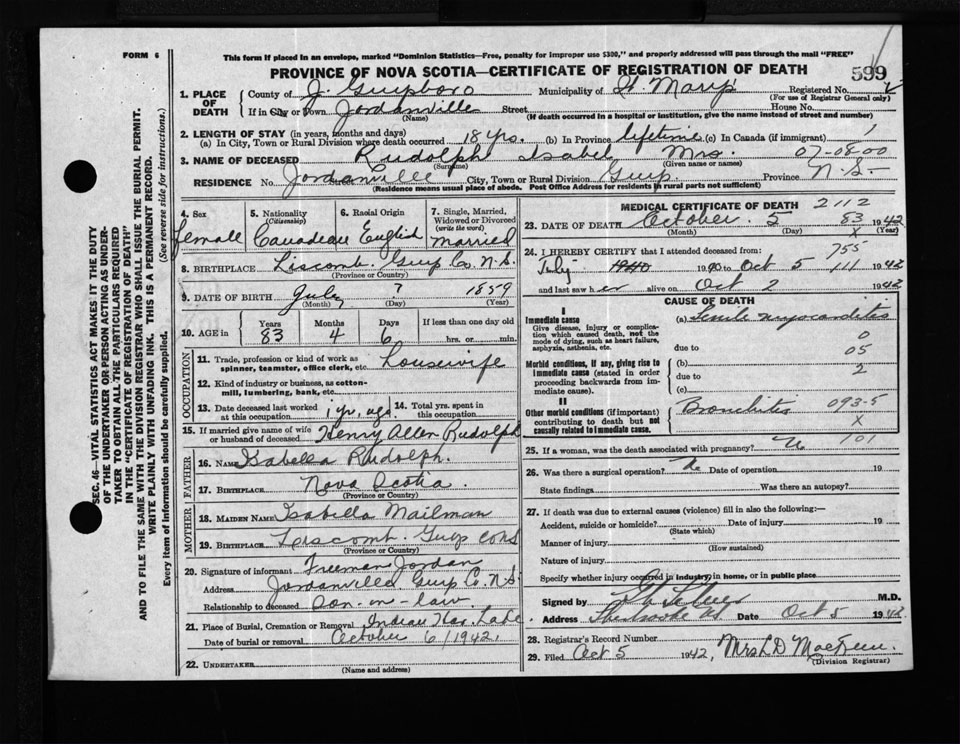 FORM 6
This form if placed in an envelope, marked "Dominion Statistics—Free, penalty for improper use $300," and properly addressed will pass through the mail "FREE"
PROVINCE OF NOVA SCOTIA—CERTIFICATE OF REGISTRATION OF DEATH
599
1. PLACE OF DEATH
County of Guysboro Municipality of St. Marys Registered No.
(For use of Registrar General only)
If in City or Town Jordanville Street House No.
(Name) (If death occurred in a hospital or institution, give the name instead of street and number)
2. LENGTH OF STAY (in years, months and days)
(a) In City, Town or Rural Division where death occurred 18 yrs. (b) In Province lifetime (c) In Canada (if immigrant)
3. NAME OF DECEASED Rudolph Isabel Mrs. 07-08-00
(Surname) (Given name or names)
RESIDENCE No. Jordanville Street City, Town or Rural Division Guys. Province N.S.
(Residence means usual place of abode. Post Office Address for residents in rural parts not sufficient)
4. Sex female
5. Nationality (Citizenship) Canadian
6. Racial Origin English
7. Single, Married, Widowed or Divorced (write the word) married
8. BIRTHPLACE Liscomb. Guys Co. N.S.
(Province or Country)
9. DATE OF BIRTH July ? 1859
(Month) (Day) (Year)
10. AGE in Years 83 Months 4 Days 6 If less than one day old hrs. or min.
OCCUPATION
11. Trade, profession or kind of work as spinner, teamster, office clerk, etc. Housewife
12. Kind of industry or business, as cotton-mill, lumbering, bank, etc.
13. Date deceased last worked at this occupation 1 yr. ago. 14. Total yrs. spent in this occupation
15. If married give name of wife or husband of deceased Henry Allen Rudolph
FATHER
16. NAME Isabella Rudolph.
17. BIRTHPLACE Nova Scotia.
(Province or Country)
MOTHER
18. MAIDEN NAME Isabella Mailman
19. BIRTHPLACE Liscomb. Guys
(Province or Country)
20. Signature of informant Freeman Jordan
Address Jordanville Guys. Co. N.S.
Relationship to deceased son-in-law
21. Place of Burial, Cremation or Removal Indian Har. Lake
Date of burial or removal October 6/1942.
22. UNDERTAKER
(Name and address)
MEDICAL CERTIFICATE OF DEATH 2112
23. DATE OF DEATH October. 5 83 1942
(Month) (Day) X (Year)
24. I HEREBY CERTIFY that I attended deceased from: 755
July 1940 1940 to Oct 5 111 1942
and last saw her alive on Oct 2 1942
CAUSE OF DEATH
I
Immediate cause
Give disease, injury or complication which caused death, not the mode of dying, such as heart failure, asphyxia, asthenia, etc.
(a) Senile myocarditis
0
due to 05
Morbid conditions, if any, giving rise to immediate cause (stated in order proceeding backwards from immediate cause).
(b) 2
due to
(c)
II
Other morbid conditions (if important) contributing to death but not causally related to immediate cause.
Bronchitis 093-5
X
25. If a woman, was the death associated with pregnancy? No 101
26. Was there a surgical operation? No Date of operation 19
State findings Was there an autopsy?
27. If death was due to external causes (violence) fill in also the following:—
Accident, suicide or homicide? Date of injury 19
(State which)
Manner of injury
(How sustained)
Nature of injury
Specify whether injury occurred in industry, in home, or in public place
Signed by M.D.
Address Sherbrooke Date Oct 5 1942
28. Registrar's Record Number
29. Filed Oct 5 1942, Mrs L D
(Division Registrar)
SEC. 46—VITAL STATISTICS ACT MAKES IT THE DUTY
OF THE UNDERTAKER OR PERSON ACTING AS UNDER-
TAKER TO OBTAIN ALL THE PARTICULARS REQUIRED
IN THE "CERTIFICATE OF REGISTRATION OF DEATH"
AND TO FILE THE SAME WITH THE DIVISION REGISTRAR WHO SHALL ISSUE THE BURIAL PERMIT.
WRITE PLAINLY WITH UNFADING INK. THIS IS A PERMANENT RECORD.
Every item of information should be carefully supplied. (See reverse side for instructions.)